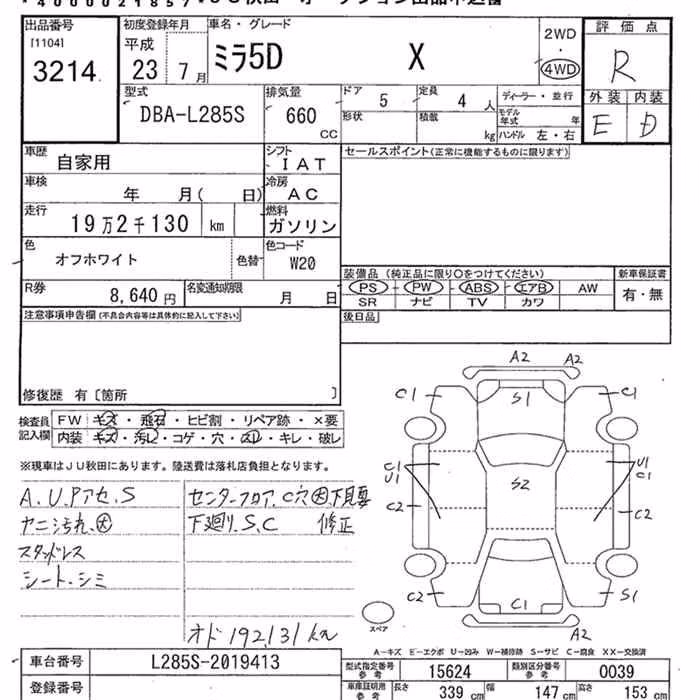 出品番号 [1104] 3214
初度登録年月 平成 23 7月
車名・グレード ミラ5D X
2WD ・ 4WD
評価点 R
外装 内装 E D
型式 DBA-L285S
排気量 660 CC
ドア 5 定員 4 人
形状 積載 kg
ディーラー・並行
モデル年式 年
ハンドル 左・右
車歴 自家用
シフト I A T
セールスポイント(正常に機能するものに限ります)
車検 年 月( 日)
冷房 A C
走行 19万2千130 km
燃料 ガソリン
色 オフホワイト 色替
色コード W20
装備品 (純正品に限り○をつけてください)
新車保証書 有・無
PS PW ABS エアB AW
SR ナビ TV カワ
R券 8,640 円
名変通知期限 月 日
後日品
注意事項申告欄(不具合内容等は具体的に記入して下さい)
修復歴 有〔箇所 〕
検査員記入欄
FW キズ・飛石・ヒビ割・リペア跡・×要
内装 キズ・汚レ・コゲ・穴・スレ・キレ・破レ
※現車はJU秋田にあります。陸送費は落札店負担となります。
A.U.Pアセ.S
センターフロア.C穴大下見要
ナニ汚れ.大
下廻り.S.C 修正
スタッドレス
シート.シミ
オド 192,131 km
A2 A2
C1 S1 C1
C1 U1 U1 C1
C2 S2 C2
C2 C1 S1
A2
スペア
A－キズ E－エクボ U－凹み W－補修跡 S－サビ C－腐食 XX－交換済
車台番号 L285S-2019413
登録番号
型式指定番号 参考 15624
類別区分番号 参考 0039
車庫証明用 参考 長さ 339 cm 幅 147 cm 高さ 153 cm